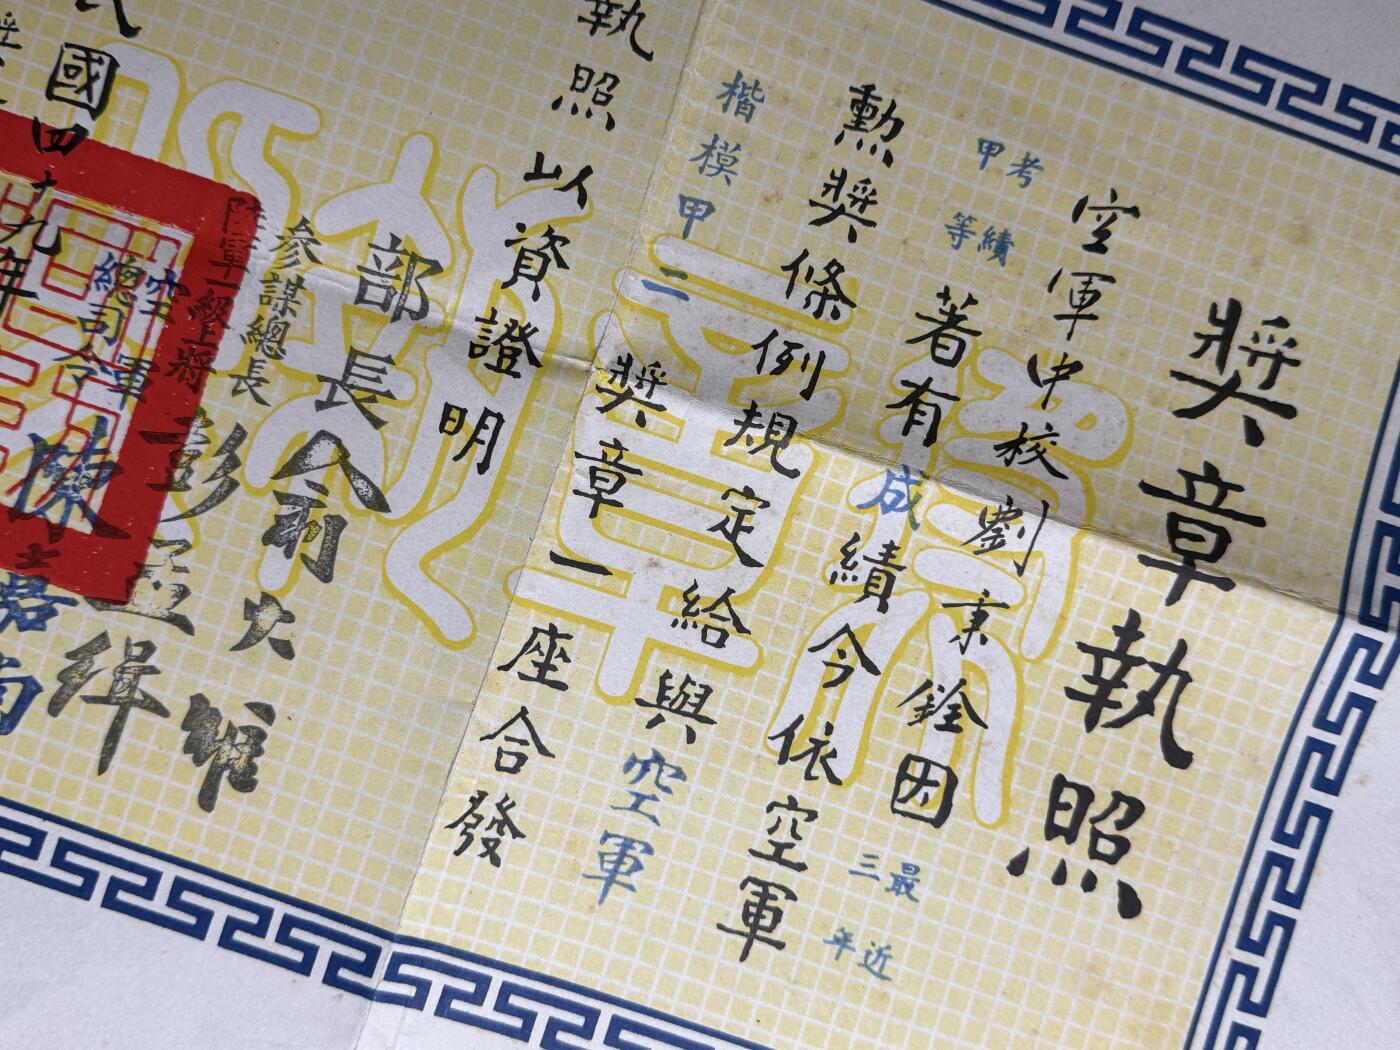 獎章執照
空軍中校劉秉銓因最近三年
考績甲等著有成績今依空軍
勳獎條例規定給與空軍
楷模甲二獎章一座合發
執照以資證明
部長俞大維
參謀總長
陸軍一級上將
彭孟緝
空軍
總司令
陳嘉尚
民國四十九年